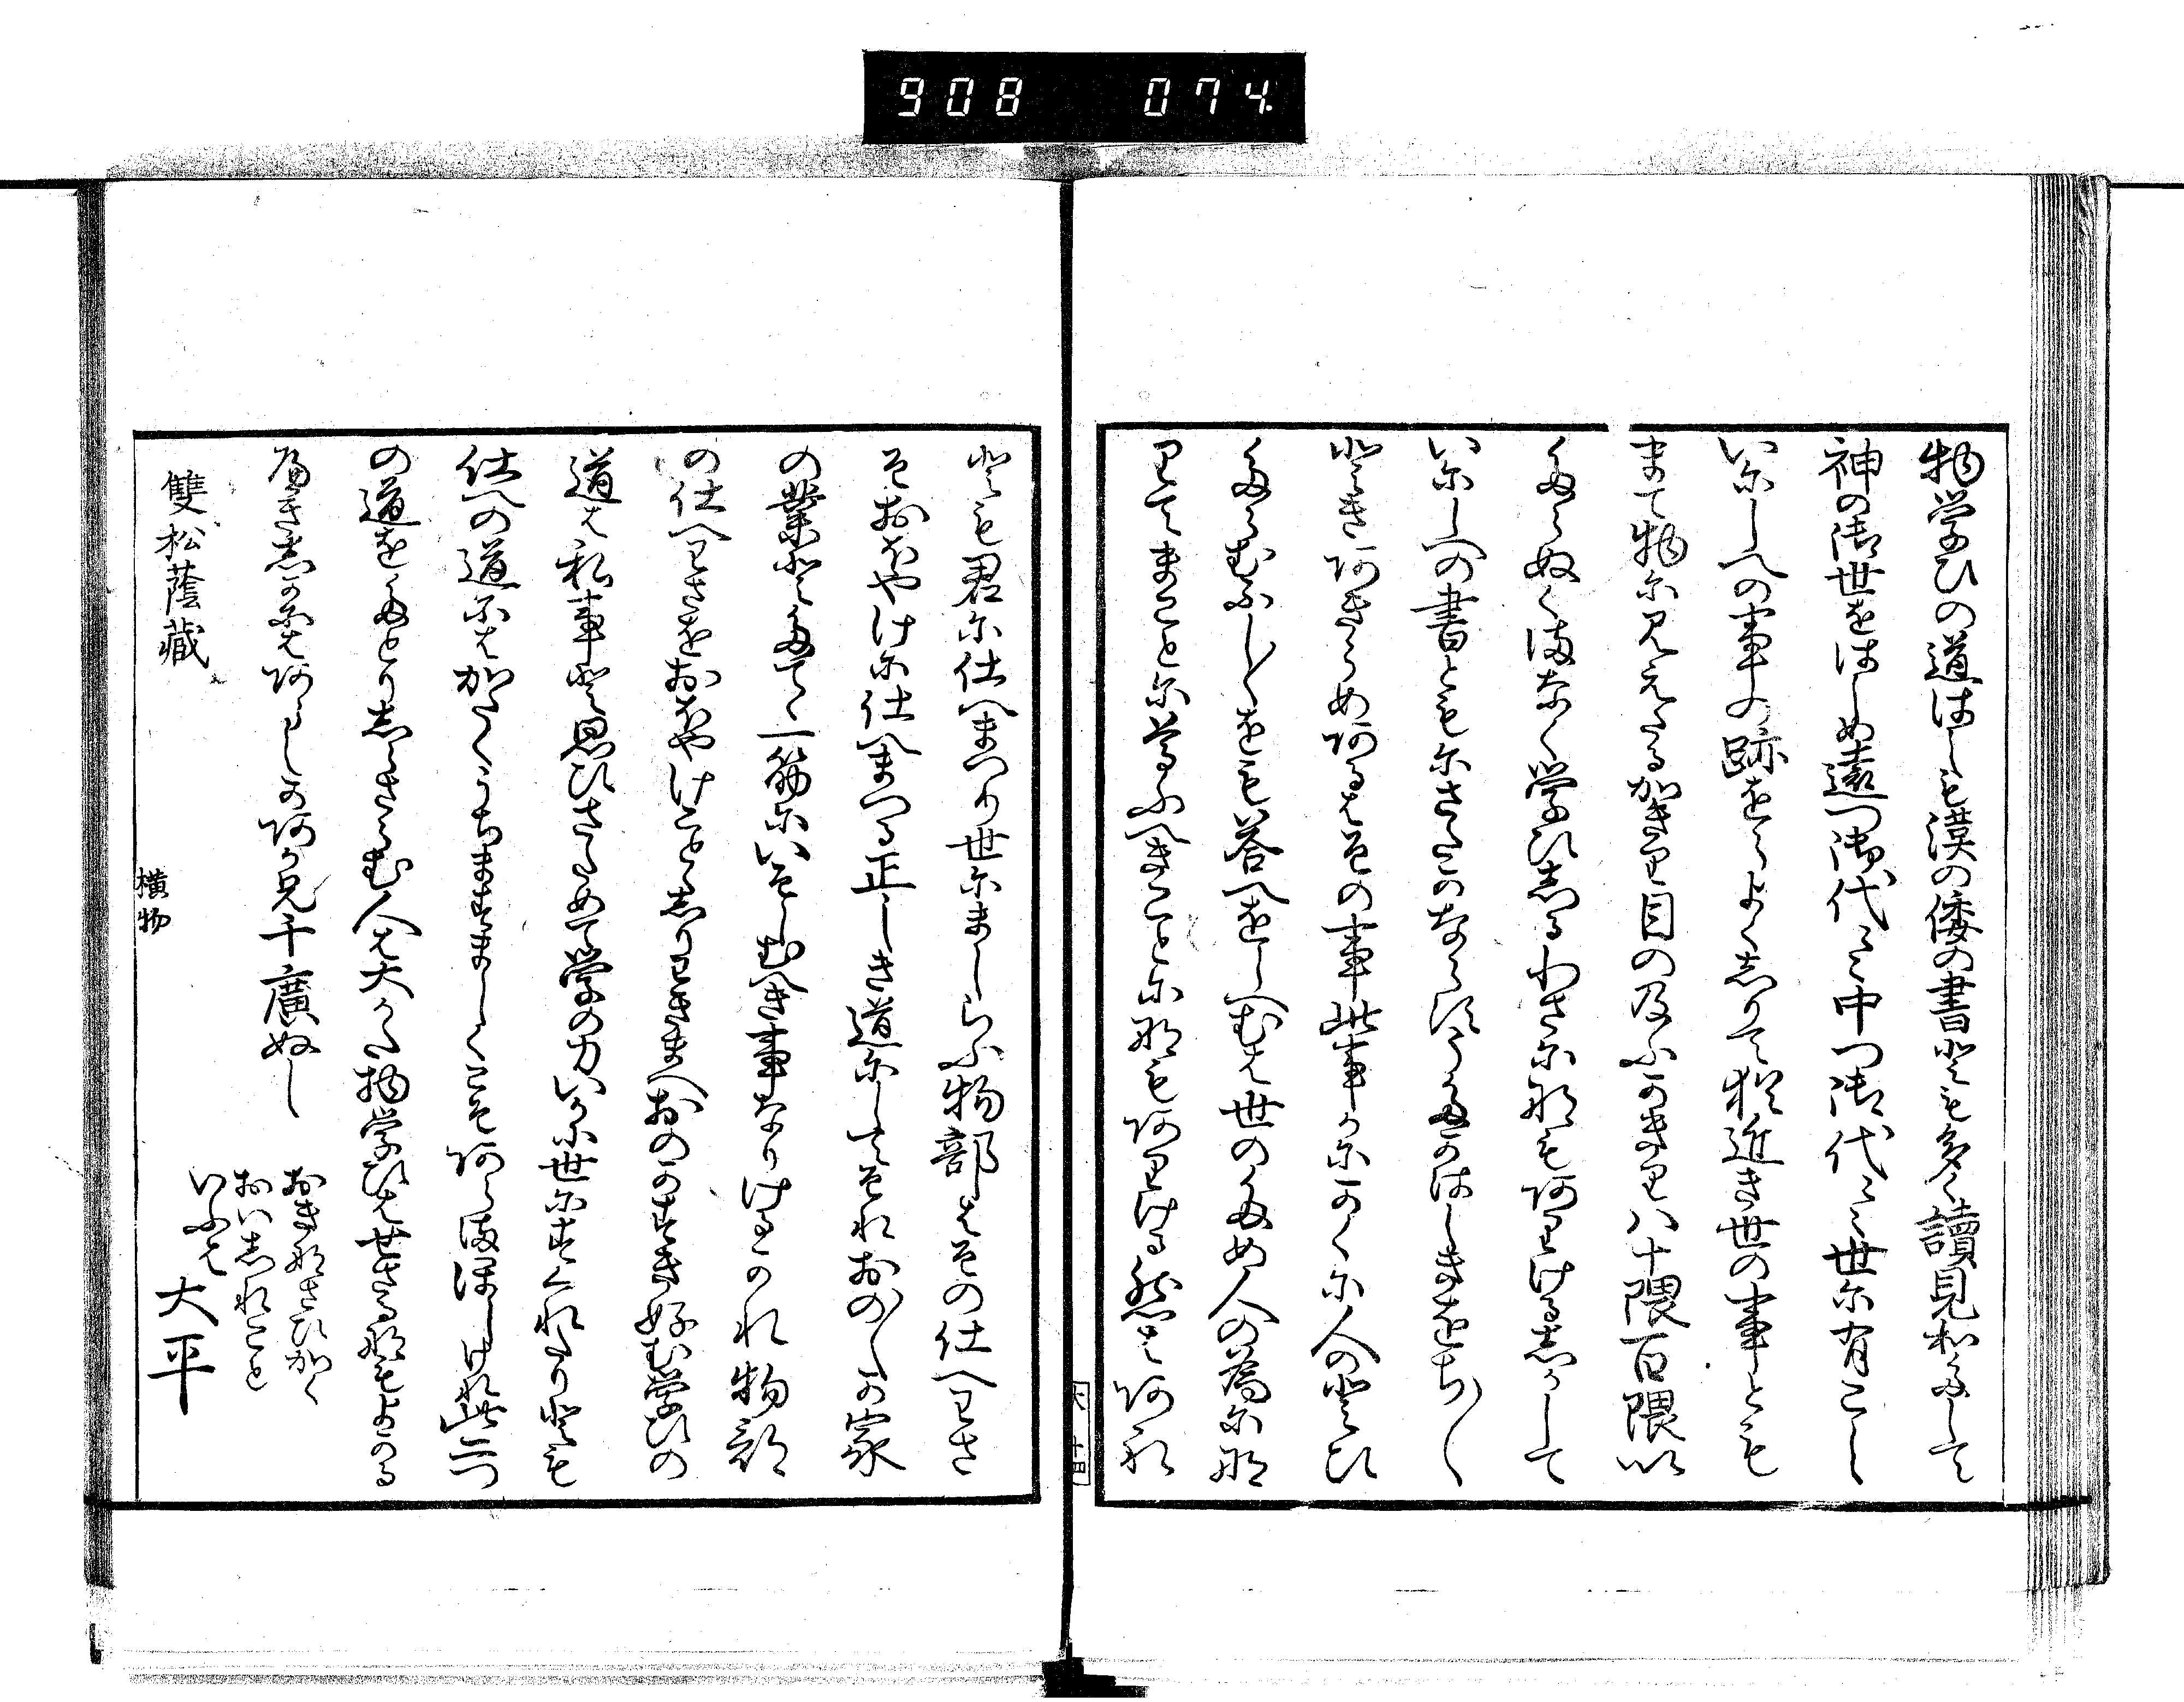 908 074
物学ひの道はしも漢の倭の書ともを多く讀見わたして
神の御世をはしめ遠つ御代々中つ御代々世に有こし
いにしへの事の跡をらよくしりて猶近き世の事とも
まて物に見えたるかきり目の及ふかきり八十隈百隈い
たらぬくまなく学ひしるわさになもありける志かして
いにしへの書ともにさたかならすうたかはしきをち〳〵
ときあきらめあるはその事此事かにかくに人のとひ
たらむふし〳〵をも答へをしへむは世のため人の為にな
りてまことに尊ふへきことになもありける然はあれ
とも君に仕へまつり世にましらふ物部はその仕へわさ
そおほやけに仕へまつる正しき道にしてそれおの〳〵か家
の業とたてゝ一筋にいそしむへき事なりけるかれ物部
の仕へわさをおほやけことゝしりわきまへおのかすき好む学ひの
道は私事と思ひさためて学の力いかに世にすくれたりとも
仕への道にはかたくうちますまし〳〵こそあらまほしけれ此二つ
の道をたとりしらさらむ人は大かた物学ひはせさるなもよかる
へき志かにはあらしかあか兄千廣ぬし
おきなさひかく
おいしれこと
いふは 大平
雙松蔭藏
横物
大 十四